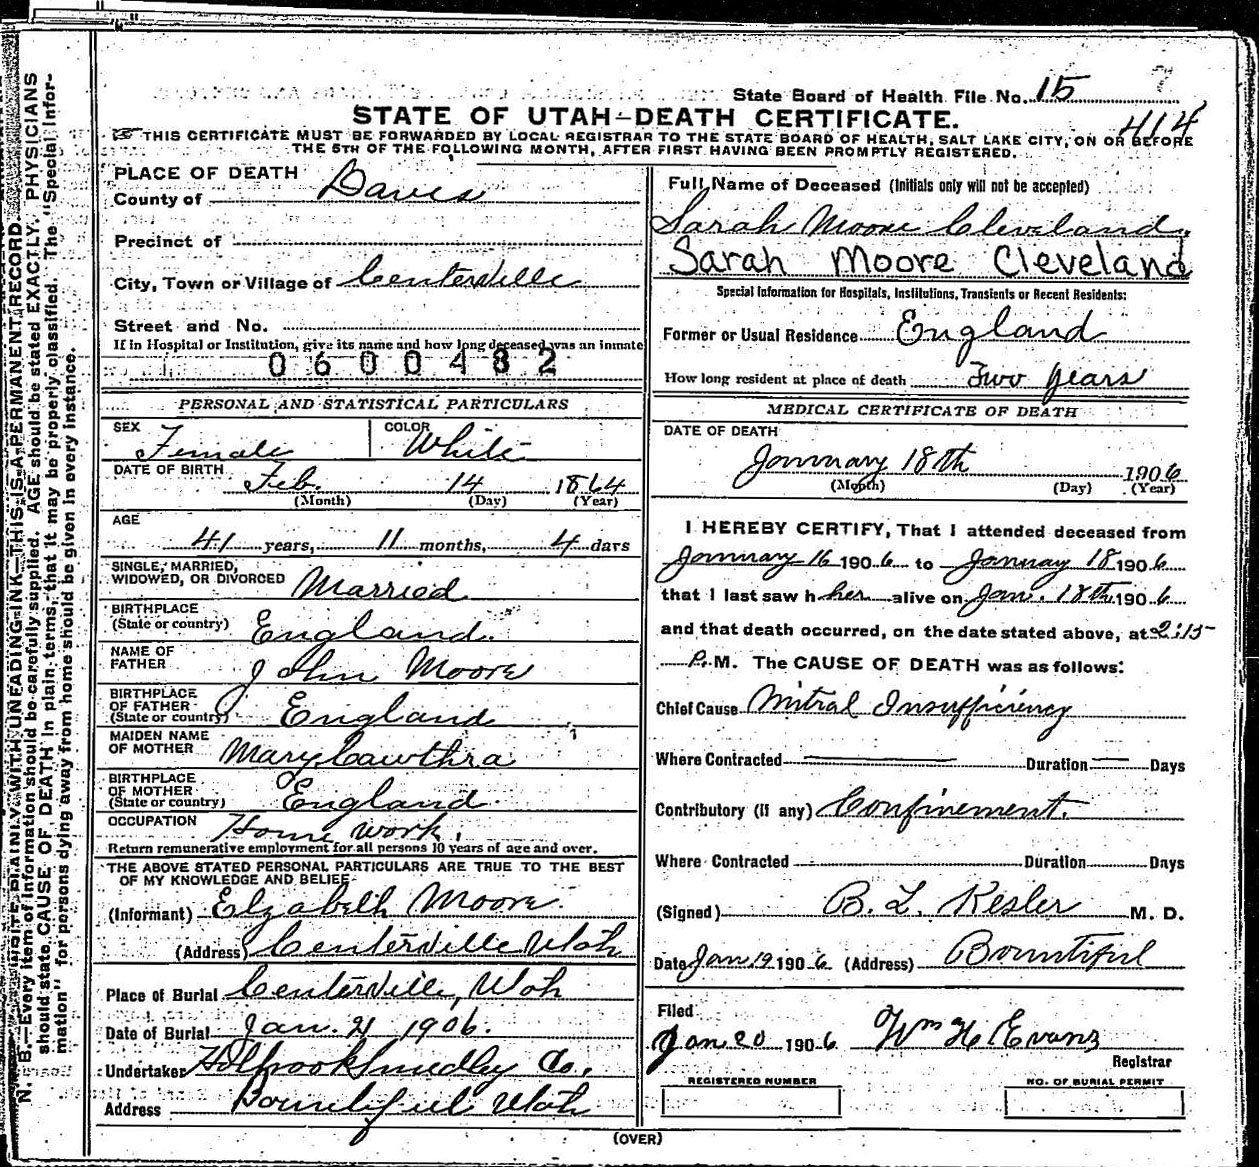 State Board of Health File No. 15
414
STATE OF UTAH—DEATH CERTIFICATE.
THIS CERTIFICATE MUST BE FORWARDED BY LOCAL REGISTRAR TO THE STATE BOARD OF HEALTH, SALT LAKE CITY, ON OR BEFORE
THE 5TH OF THE FOLLOWING MONTH, AFTER FIRST HAVING BEEN PROMPTLY REGISTERED.
N. B.—Every item of information should be carefully supplied. AGE should be stated EXACTLY. PHYSICIANS
should state CAUSE OF DEATH in plain terms, that it may be properly classified. The "Special Infor-
mation" for persons dying away from home should be given in every instance.
WRITE PLAINLY WITH UNFADING INK—THIS IS A PERMANENT RECORD.
PLACE OF DEATH
County of Davis
Precinct of
City, Town or Village of Centerville
Street and No.
If in Hospital or Institution, give its name and how long deceased was an inmate
0600482
PERSONAL AND STATISTICAL PARTICULARS
SEX Female COLOR White
DATE OF BIRTH Feb. 14 1864
(Month) (Day) (Year)
AGE
41 years, 11 months, 4 days
SINGLE, MARRIED,
WIDOWED, OR DIVORCED Married
BIRTHPLACE
(State or country) England.
NAME OF
FATHER John Moore
BIRTHPLACE
OF FATHER
(State or country) England
MAIDEN NAME
OF MOTHER Mary Cawthra
BIRTHPLACE
OF MOTHER
(State or country) England
OCCUPATION Home work.
Return remunerative employment for all persons 10 years of age and over.
THE ABOVE STATED PERSONAL PARTICULARS ARE TRUE TO THE BEST
OF MY KNOWLEDGE AND BELIEF
(Informant) Elzabeth Moore.
(Address) Centerville Utah
Place of Burial Centerville, Utah
Date of Burial Jan. 21 1906.
Undertaker Holbrook Smedley Co.
Address Bountiful Utah
Full Name of Deceased (Initials only will not be accepted)
Sarah Moore Cleveland.
Sarah Moore Cleveland
Special Information for Hospitals, Institutions, Transients or Recent Residents:
Former or Usual Residence England
How long resident at place of death Two years
MEDICAL CERTIFICATE OF DEATH
DATE OF DEATH
January 18th 1906
(Month) (Day) (Year)
I HEREBY CERTIFY, That I attended deceased from
January 16 1906 to January 18 1906
that I last saw her alive on Jan. 18th 1906
and that death occurred, on the date stated above, at 2:15
P. M. The CAUSE OF DEATH was as follows:
Chief Cause Mitral Insufficiency
Where Contracted Duration Days
Contributory (if any) Confinement.
Where Contracted Duration Days
(Signed) B. L. Kesler M. D.
Date Jan 19 1906 (Address) Bountiful
Filed
Jan 20 1906 Wm H Evans
Registrar
REGISTERED NUMBER NO. OF BURIAL PERMIT
(OVER)